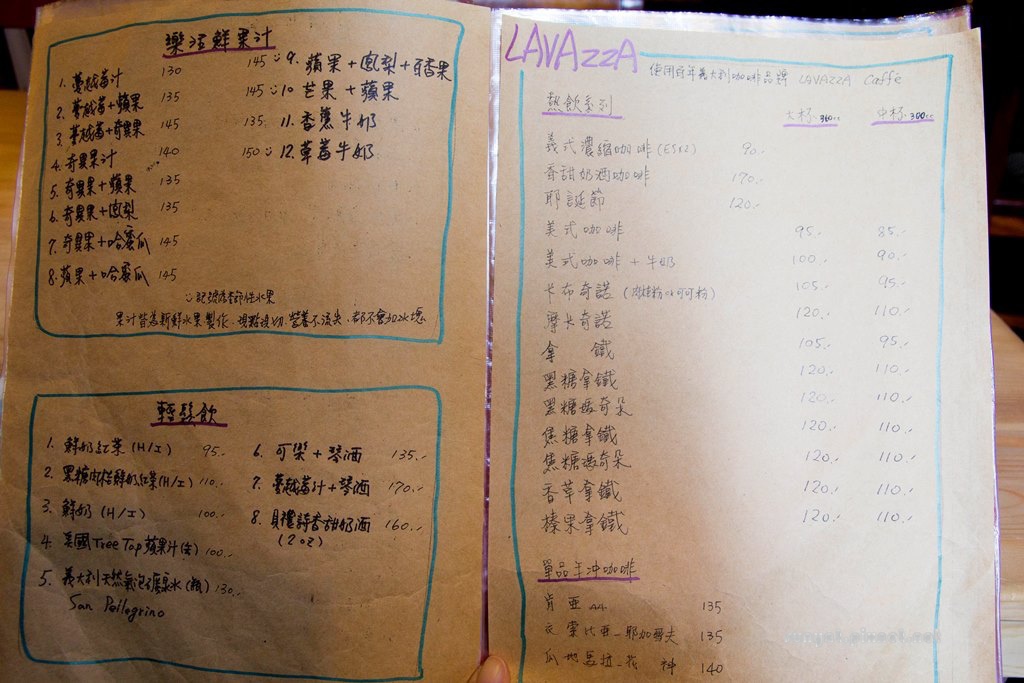 樂活鮮果汁
1. 蔓越莓汁 130
2. 蔓越莓+蘋果 135
3. 蔓越莓+奇異果 145
4. 奇異果汁 140
5. 奇異果+蘋果 135
6. 奇異果+鳳梨 135
7. 奇異果+哈蜜瓜 145
8. 蘋果+哈蜜瓜 145
145 ∵ 9. 蘋果+鳳梨+百香果
145 ∵ 10 芒果+蘋果
135. 11. 香蕉牛奶
150 ∵ 12. 草莓牛奶
∵記號為季節性水果
果汁皆為新鮮水果製作、現點現切、營養不流失、都不會加冰塊
輕鬆飲
1. 鮮奶紅茶 (H/I) 95.-
2. 黑糖肉桂鮮奶紅茶(H/I) 110.-
3. 鮮奶 (H/I) 100.-
4. 美國Tree Top蘋果汁 100.-
5. 義大利天然氣泡礦泉水(瓶) 130.-
San Pellegrino
6. 可樂+琴酒 135.-
7. 蔓越莓汁+琴酒 170.-
8. 貝禮詩香甜奶酒 160.-
(2oz)
LAVAzzA
使用百年義大利咖啡品牌 LAVAZZA Caffè
熱飲系列 大杯 360cc 中杯 300cc
義式濃縮咖啡 90.-
香甜奶酒咖啡 170.-
耶誕節 120.-
美式咖啡 95.- 85.-
美式咖啡+牛奶 100.- 90.-
卡布奇諾 (肉桂粉or可可粉) 105.- 95.-
摩卡奇諾 120.- 110.-
拿 鐵 105.- 95.-
黑糖拿鐵 120.- 110.-
黑糖瑪奇朵 120.- 110.-
焦糖拿鐵 120.- 110.-
焦糖瑪奇朵 120.- 110.-
香草拿鐵 120.- 110.-
榛果拿鐵 120.- 110.-
單品手冲咖啡
肯亞 AA 135
衣索比亞_耶加雪夫 135
瓜地馬拉_花神 140